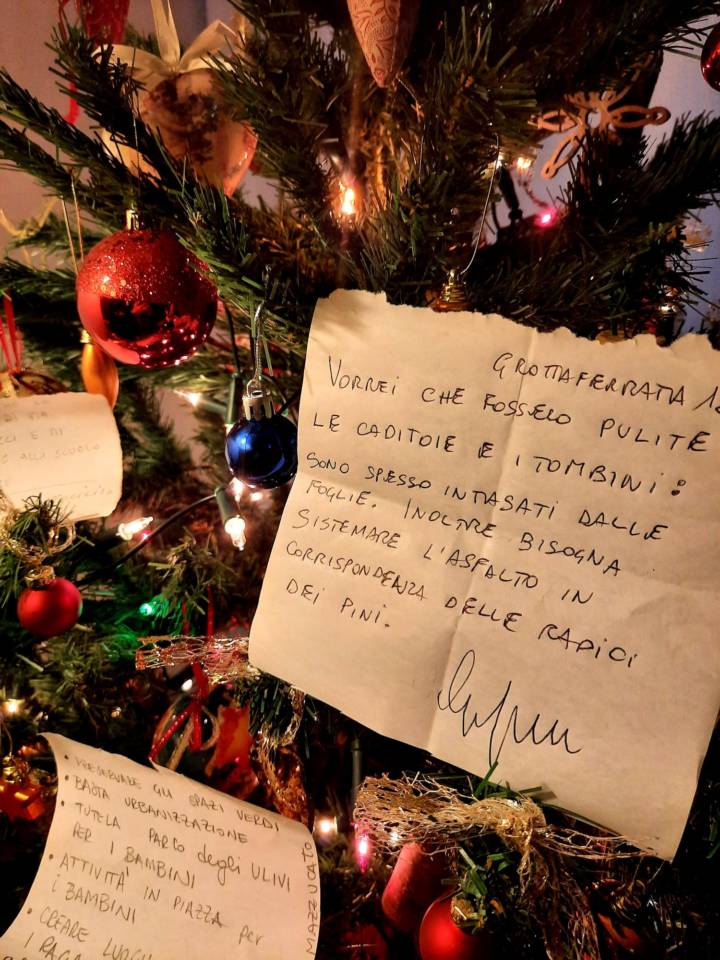 GROTTAFERRATA
VORREI CHE FOSSERO PULITE
LE CADITOIE E I TOMBINI:
SONO SPESSO INTASATI DALLE
FOGLIE. INOLTRE BISOGNA
SISTEMARE L'ASFALTO IN
CORRISPONDENZA DELLE RADICI
DEI PINI.
• PRESERVARE GLI SPAZI VERDI
• BASTA URBANIZZAZIONE
• TUTELA PARCO degli ULIVI
PER I BAMBINI
• ATTIVITÀ IN PIAZZA per
i BAMBINI
• CREARE